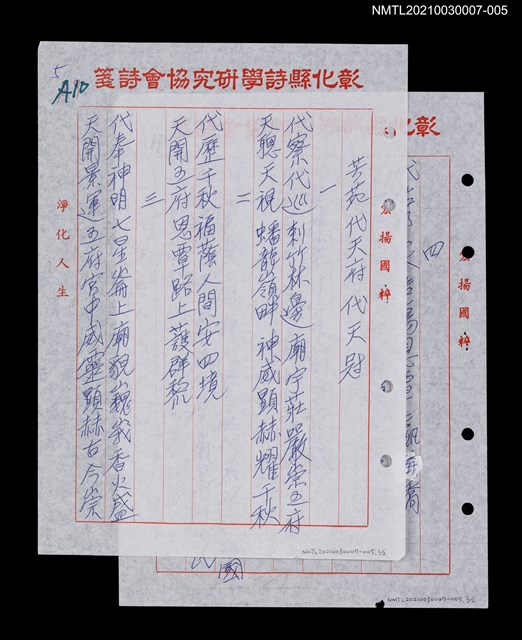 NMTL20210030007-005
彰化縣詩學研究協會詩箋
5
A10
宏揚國粹
芳苑代天府代天冠
一
代察代巡刺竹林邊廟宇莊嚴崇五府
天聽天視蟠龍嶺畔神威顯赫耀千秋
二
代歷千秋福蔭人間安四境
天開五府恩覃路上護群黎
三
代奉神明七星崙上廟貌巍峩香火盛
天開景運五府宮中威靈顯赫古今崇
淨化人生
NMTL20210030007-005.35
彰化
宏揚國粹
四
國
NMTL20210030007-005.35